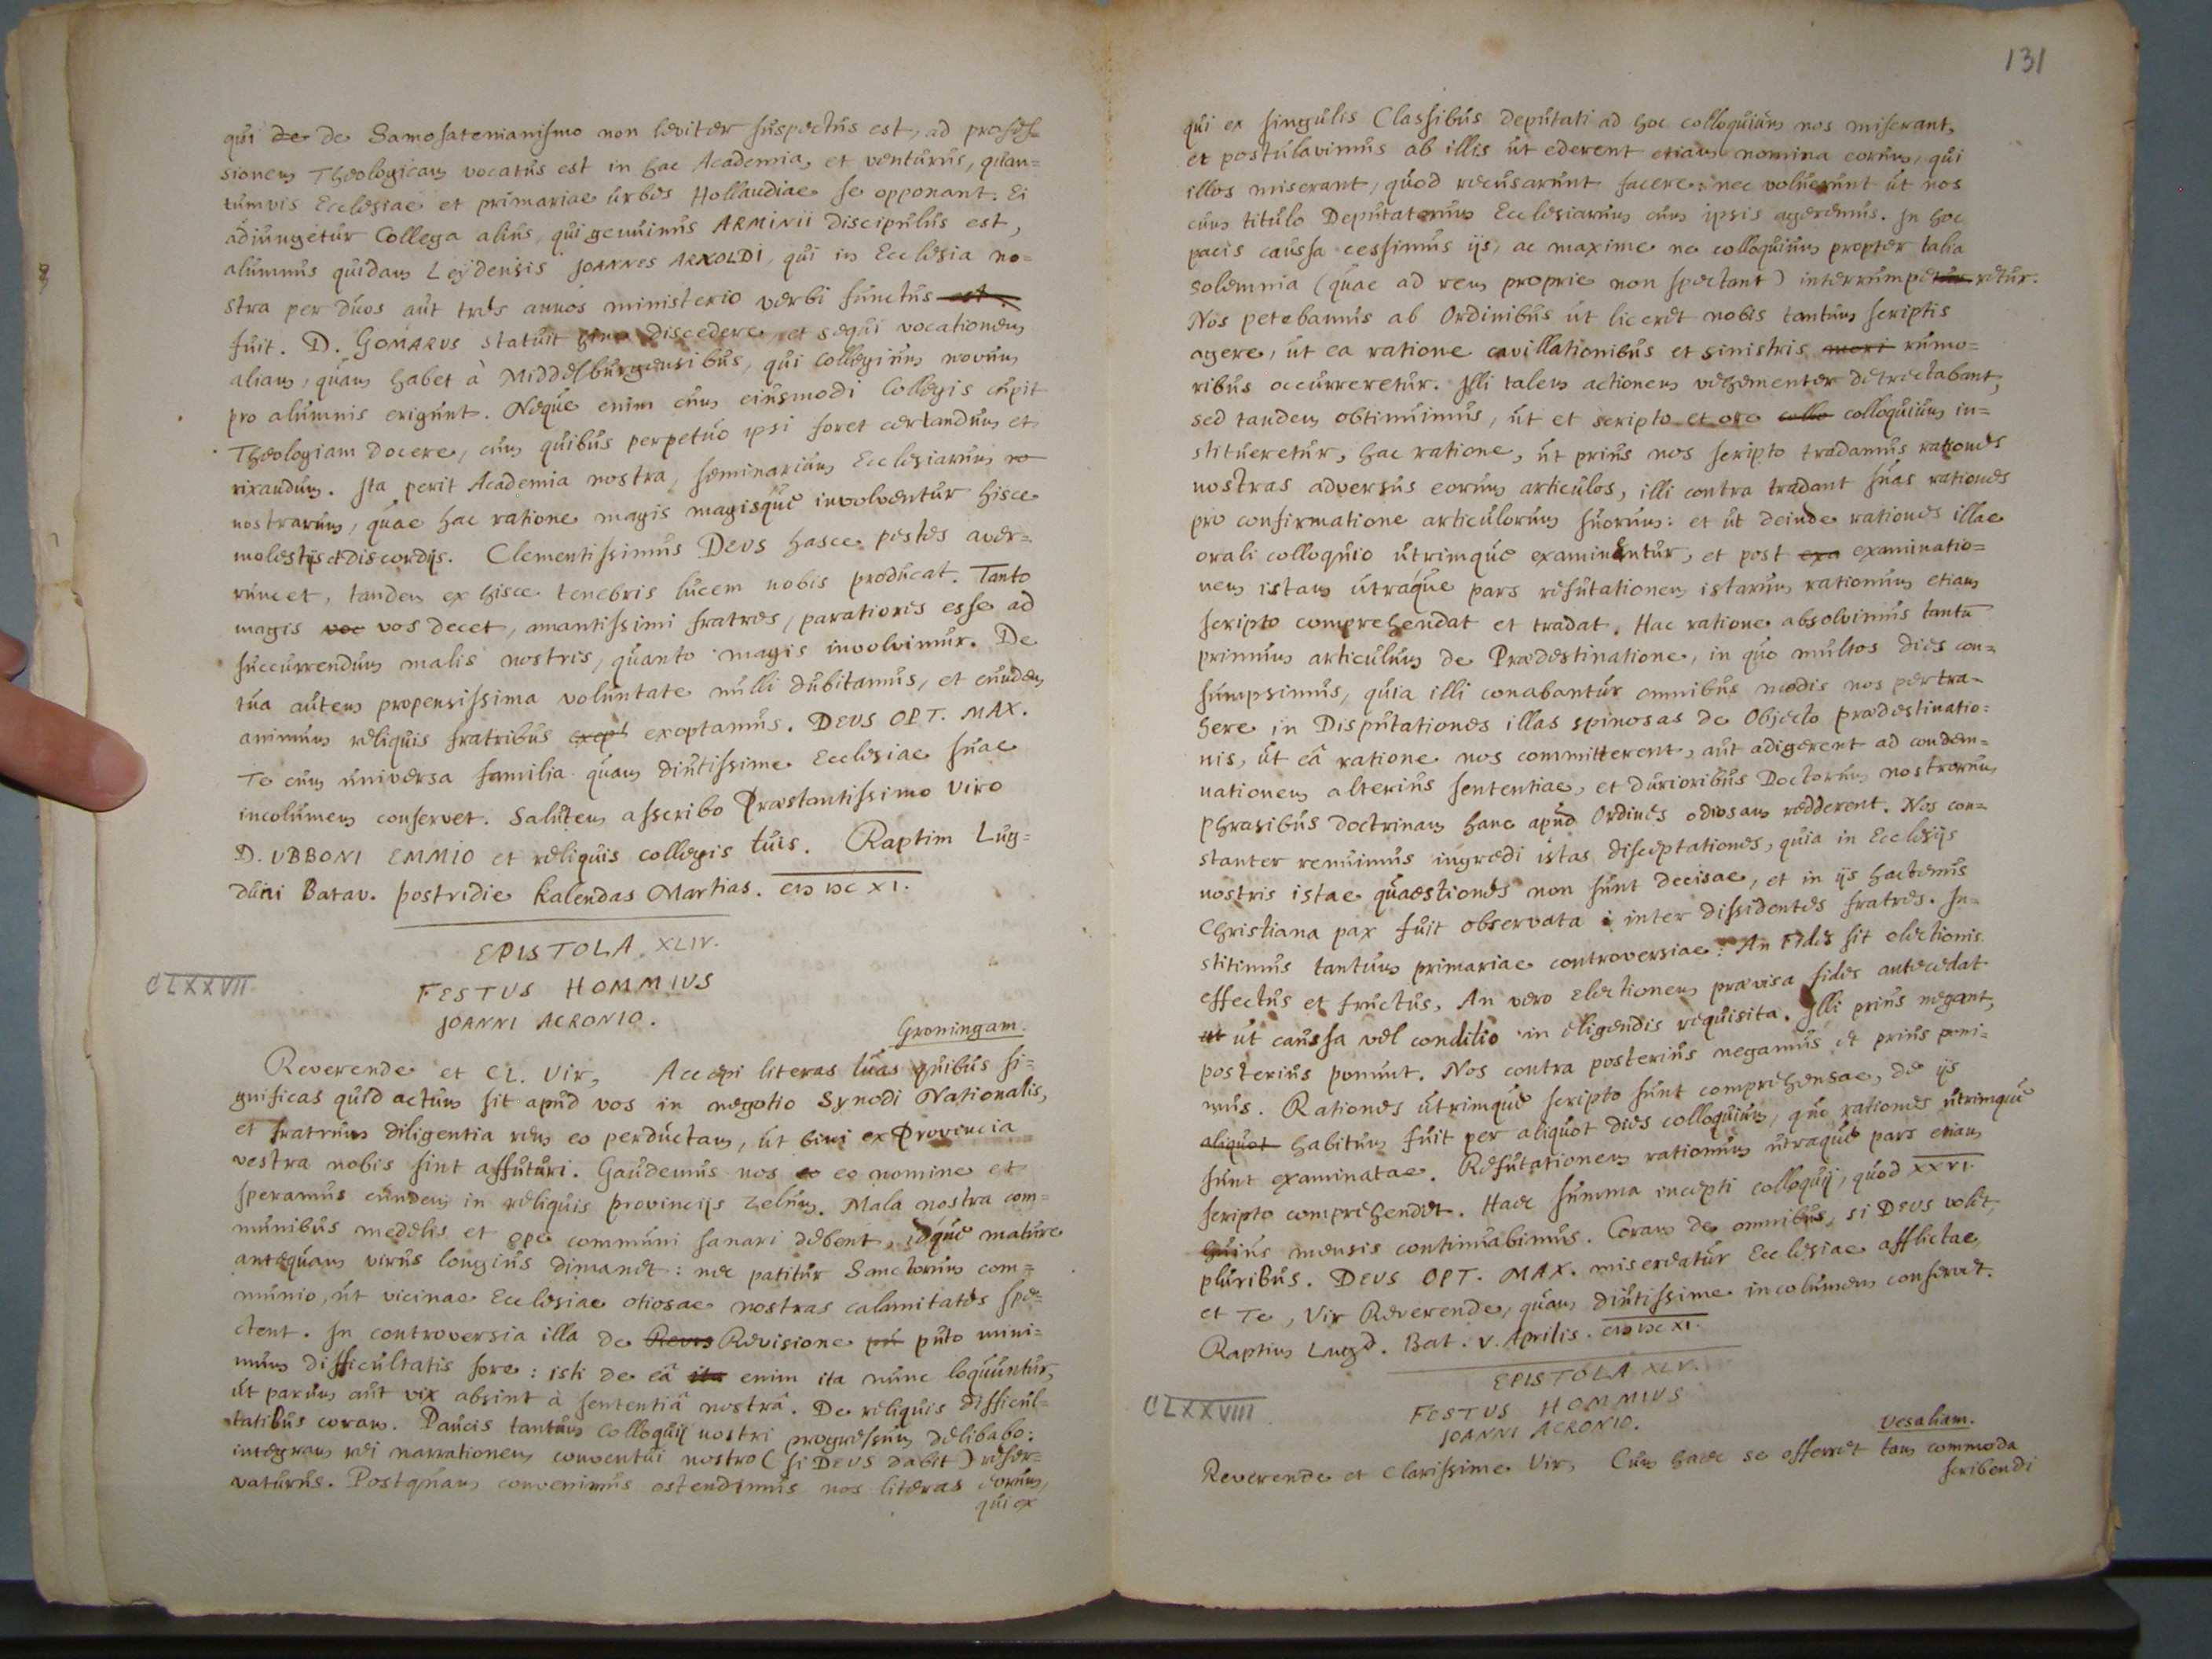 qui de de Samosatenianismo non leviter suspectus est, ad profes-
sionem Theologicam vocatus est in hac Academia, et venturus, quan=
tumvis Ecclesiae et primariae urbes Hollandiae se opponant. Ei
adiungetur Collega alius, qui genuinus ARMINII discipulus est,
alumnus quidam Leydensis JOANNES ARNOLDI, qui in Ecclesia no=
stra per duos aut tres annos ministerio verbi functus est.
fuit. D. GOMARUS statuit hinc discedere et sequi vocationem
aliam, quam habet à Middelburgensibus, qui Collegium novum
pro alumnis erigunt. Neque enim cum eiusmodi Collegis cupit
Theologiam docere, cum quibus perpetuo ipsi foret certandum et
rixandum. Ita perit Academia nostra, seminarium Ecclesiarum no
nostrarum, quae hac ratione magis magisque involventur hisce
molestijs et discordijs. Clementissimus DEUS hasce pestes aver=
runcet, tandem ex hisce tenebris lucem nobis producat. Tanto
magis voc vos decet, amantissimi fratres, paratiores esse ad
succurrendum malis nostris, quanto magis involvimur. De
tua autem propensissima voluntate nulli dubitamus, et eundem
animum reliquis fratribus exop exoptamus. DEUS OPT. MAX.
Te cum universa familia quam diutissime Ecclesiae suae
incolumem conservet. Salutem asscribo Præstantissimo Viro
D. UBBONI EMMIO et reliquis collegis tuis. Raptim Lug=
duni Batav. postridie Kalendas Martias. CIƆ IƆC XI.
EPISTOLA XLIV.
CLXXVII
FESTUS HOMMIUS
JOANNI ACRONIO.
Groningam.
Reverende et Cl. Vir, Accepi literas tuas quibus si=
gnificas quid actum sit apud vos in negotio Synodi Nationalis,
et fratrum diligentia rem eo perductam, ut bini ex Provincia
vestra nobis sint affuturi. Gaudemus nos eo eo nomine et
speramus eundem in reliquis provincijs zelum. Mala nostra com=
munibus medelis et ope communi sanari debent, idque mature
antequam virus longius dimanet: nec patitur Sanctorum com=
munio, ut vicinae Ecclesiae otiosae nostras calamitates spe=
ctent. In controversia illa de Revis Revisione pu puto mini=
mum difficultatis fore: isti de eâ ita enim ita nunc loquuntur,
ut parum aut vix absint à sententiâ nostrâ. De reliquis difficul=
tatibus coram. Paucis tantum Colloquij nostri progressum delibabo:
integram rei narrationem conventui nostro (si DEUS dabit) reser=
vaturus. Postquam convenimus ostendimus nos literas eorum,
qui ex
131
qui ex singulis Classibus deputati ad hoc colloquium nos miserant,
et postulavimus ab illis ut ederent etiam nomina eorum, qui
illos miserant, quod recusarunt facere: nec voluerunt ut nos
cum titulo Deputatorum Ecclesiarum cum ipsis ageremus. In hoc
pacis caussa cessimus ijs, ac maxime ne colloquium propter talia
solemnia (quae ad rem proprie non spectant) interrumpetur retur.
Nos petebamus ab Ordinibus ut liceret nobis tantum scriptis
agere, ut ea ratione cavillationibus et sinistris mori rumo=
ribus occurreretur. Illi talem actionem vehementer detrectabant,
sed tandem obtinuimus, ut et scripto et ore collo colloquium in=
stitueretur, hac ratione, ut prius nos scripto tradamus rationes
nostras adversus eorum articulos, illi contra tradant suas rationes
pro confirmatione articulorum suorum: et ut deinde rationes illae
orali colloquio utrimque examinentur, et post exa examinatio=
nem istam utraque pars refutationem istarum rationum etiam
scripto comprehendat et tradat. Hac ratione absolvimus tantū
primum articulum de Prædestinatione, in quo multos dies con=
sumpsimus, quia illi conabantur omnibus modis nos pertra=
here in Disputationes illas spinosas de Objecto prædestinatio=
nis, ut eâ ratione nos committerent, aut adigerent ad condem=
nationem alterius sententiae, et durioribus Doctorum nostrorum
phrasibus doctrinam hanc apud Ordines odiosam redderent. Nos con=
stanter renuimus ingredi istas disceptationes, quia in Ecclesijs
nostris istae quaestiones non sunt decisae, et in ijs hactenus
Christiana pax fuit observata i inter dissidentes fratres. In=
stitimus tantum primariae controversiae: An Fides sit electionis
effectus et fructus, An vero electionem prævisa fides antecedat
ut ut caussa vel conditio in eligendis requisita. Illi prius negant,
posterius ponunt. Nos contra posterius negamus et prius poni=
mus. Rationes utrimque scripto sunt comprehensae, de ijs
aliquot habitum fuit per aliquot dies colloquium, quo rationes utrimque
sunt examinatae. Refutationem rationum utraque pars etiam
scripto comprehendet. Haec summa incepti colloquij, quod XXVI.
huius mensis continuabimus. Coram de omnibus, si DEUS volet,
pluribus. DEUS OPT. MAX. misereatur Ecclesiae afflictae
et Te, Vir Reverende, quam diutissime incolumem conservet.
Raptim Lugd. Bat. V. Aprilis. CIƆ IƆC XI.
EPISTOLA XLV.
CLXXVIII
FESTUS HOMMIUS
JOANNI ACRONIO.
Vesaliam.
Reverende et Clarissime Vir, Cum haec se offerret tam commoda
scribendi